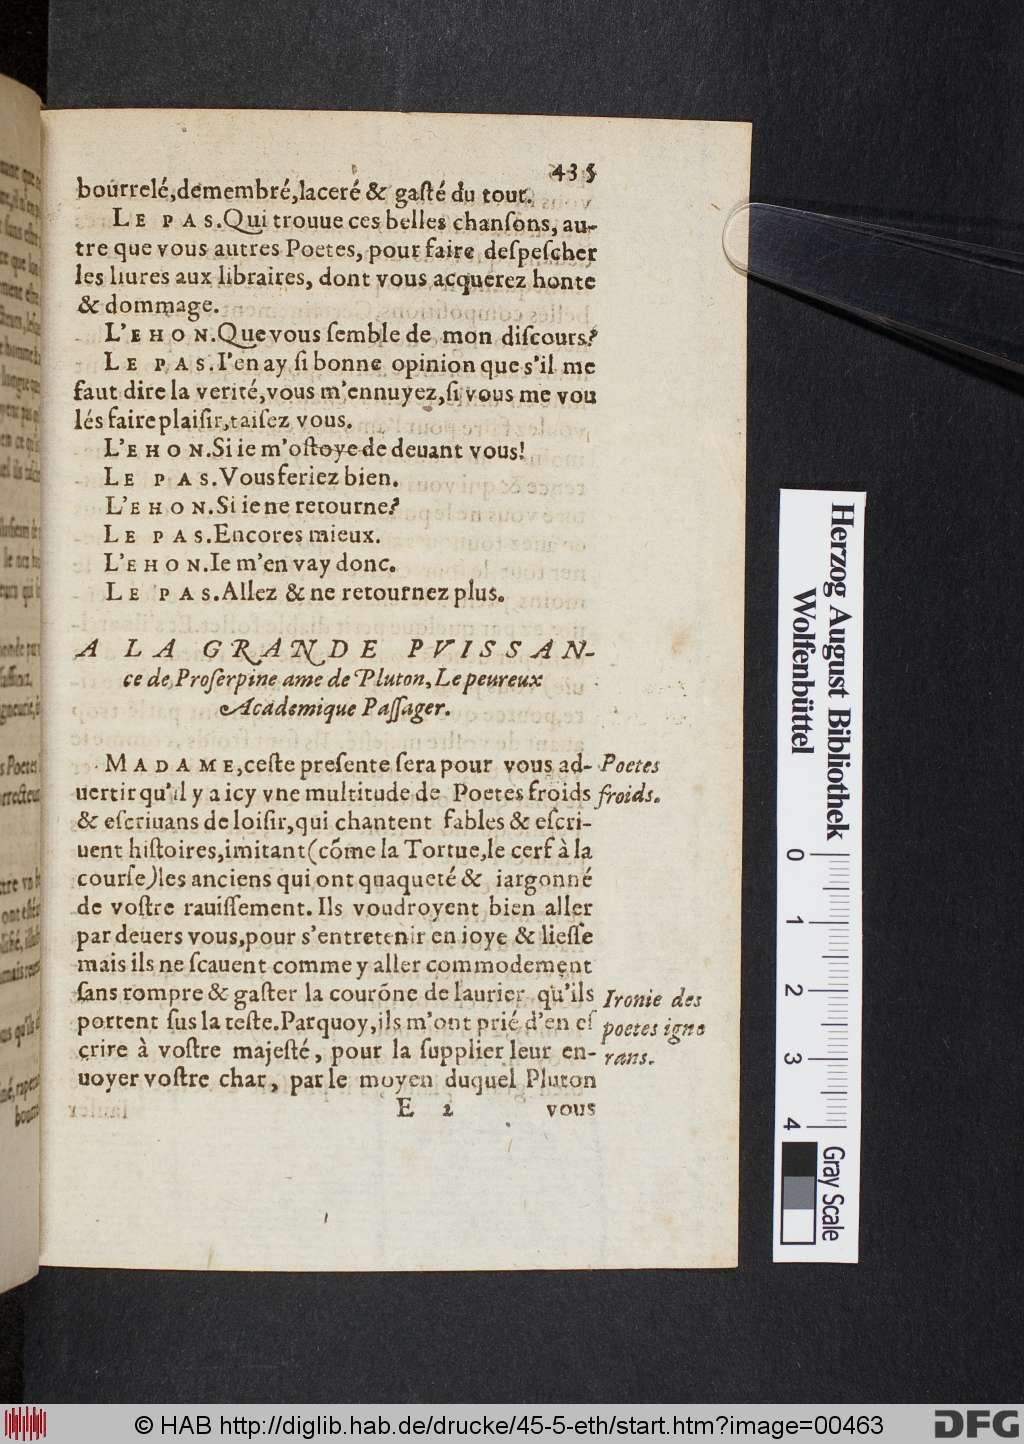 435
bourrelé,demembré,laceré & gaſté du tout.
LE PAS.Qui trouue ces belles chanſons, au-
tre que vous autres Poetes, pour faire deſpeſcher
les liures aux libraires, dont vous acquerez honte
& dommage.
L'EHON.Que vous ſemble de mon diſcours?
LE PAS.I'en ay ſi bonne opinion que s'il me
faut dire la verité,vous m'ennuyez,ſi vous me vou
lés faire plaiſir,taiſez vous.
L'EHON.Si ie m'oſtoye de deuant vous!
LE PAS.Vous feriez bien.
L'EHON.Si ie ne retourne?
LE PAS.Encores mieux.
L'EHON.Ie m'en vay donc.
LE PAS.Allez & ne retournez plus.
A LA GRANDE PVISSAN-
ce de Proſerpine ame de Pluton, Le peureux
Academique Paſſager.
MADAME,ceſte preſente ſera pour vous ad-
uertir qu'il y a icy vne multitude de Poetes froids
& eſcriuans de loiſir,qui chantent fables & eſcri-
uent hiſtoires,imitant(cõme la Tortue,le cerf à la
courſe)les anciens qui ont quaqueté & iargonné
de voſtre rauiſſement. Ils voudroyent bien aller
par deuers vous,pour s'entretenir en ioye & lieſſe
mais ils ne ſcauent comme y aller commodement
ſans rompre & gaſter la courõne de laurier qu'ils
portent ſus la teſte.Parquoy,ils m'ont prié d'en eſ
crire à voſtre majeſté, pour la ſupplier leur en-
uoyer voſtre char, par le moyen duquel Pluton
E 2 vous
Poetes
froids.
Ironie des
poetes igno
rans.
Herzog August Bibliothek
Wolfenbüttel
0 1 2 3 4
Gray Scale
© HAB http://diglib.hab.de/drucke/45-5-eth/start.htm?image=00463
DFG